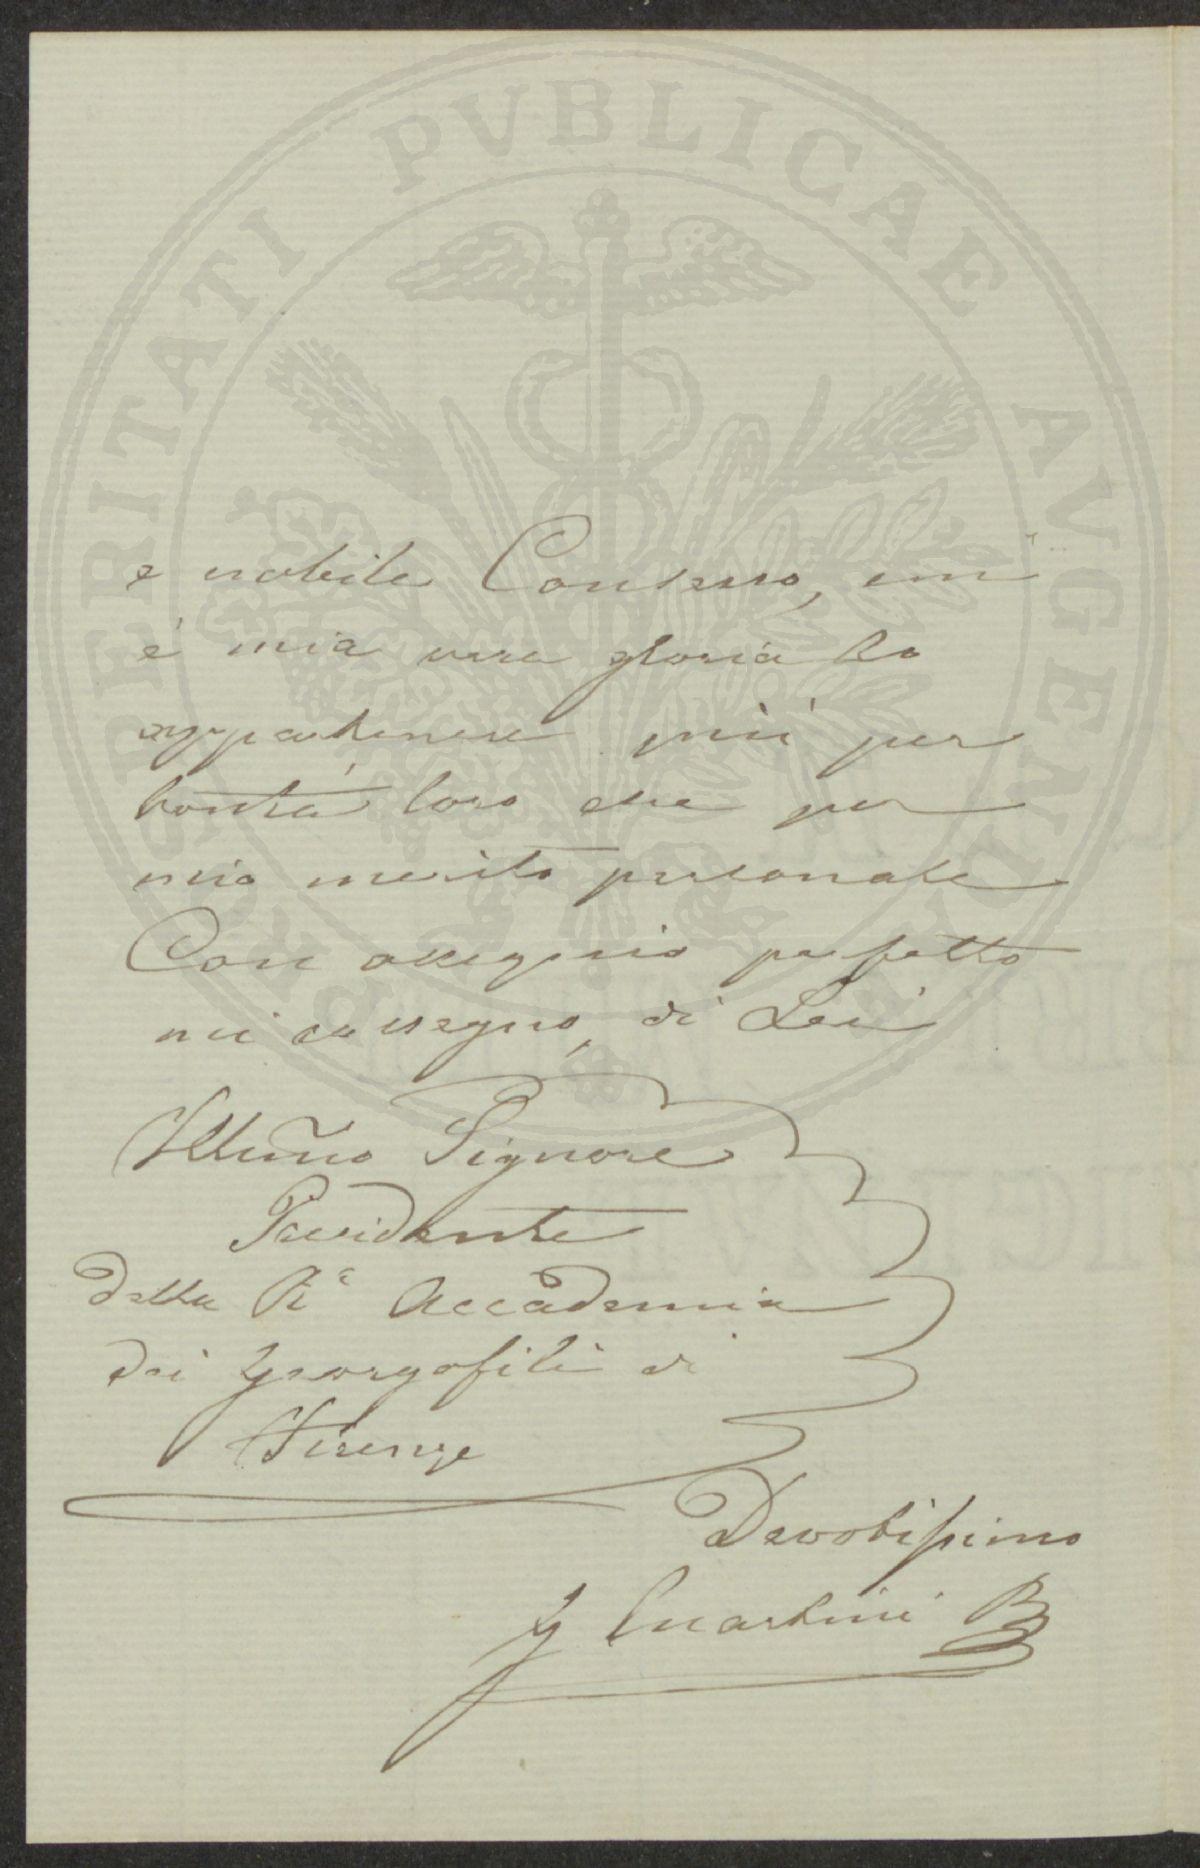 PROSPERITATI PVBLICAE AVGENDAE
e nobile Consesso, cui
è mia vera gloria lo
appartenere più per
bontà loro che per
mio merito personale
Con ossequio perfetto
mi rassegno, di Lei
Illum̃o Signore
Presidente
della Rᵉ Accademia
dei Georgofili di
Firenze
Devotissimo
G Martini B